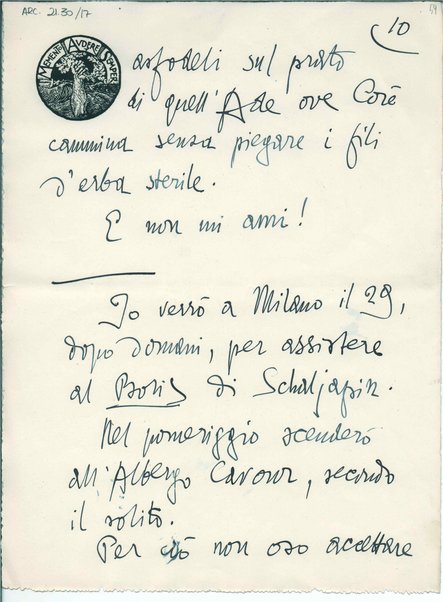 ARC. 21.30/17
10
MEMENTO AUDERE SEMPER
asfodeli sul prato
di quell'Ade ove Core
cammina senza piegare i fili
d'erba sterile.
E non mi ami!
Io verrò a Milano il 29,
dopo domani, per assistere
al Boris di Schaljapin.
Nel pomeriggio scenderò
all'Albergo Cavour, secondo
il solito.
Per ciò non oso accettare